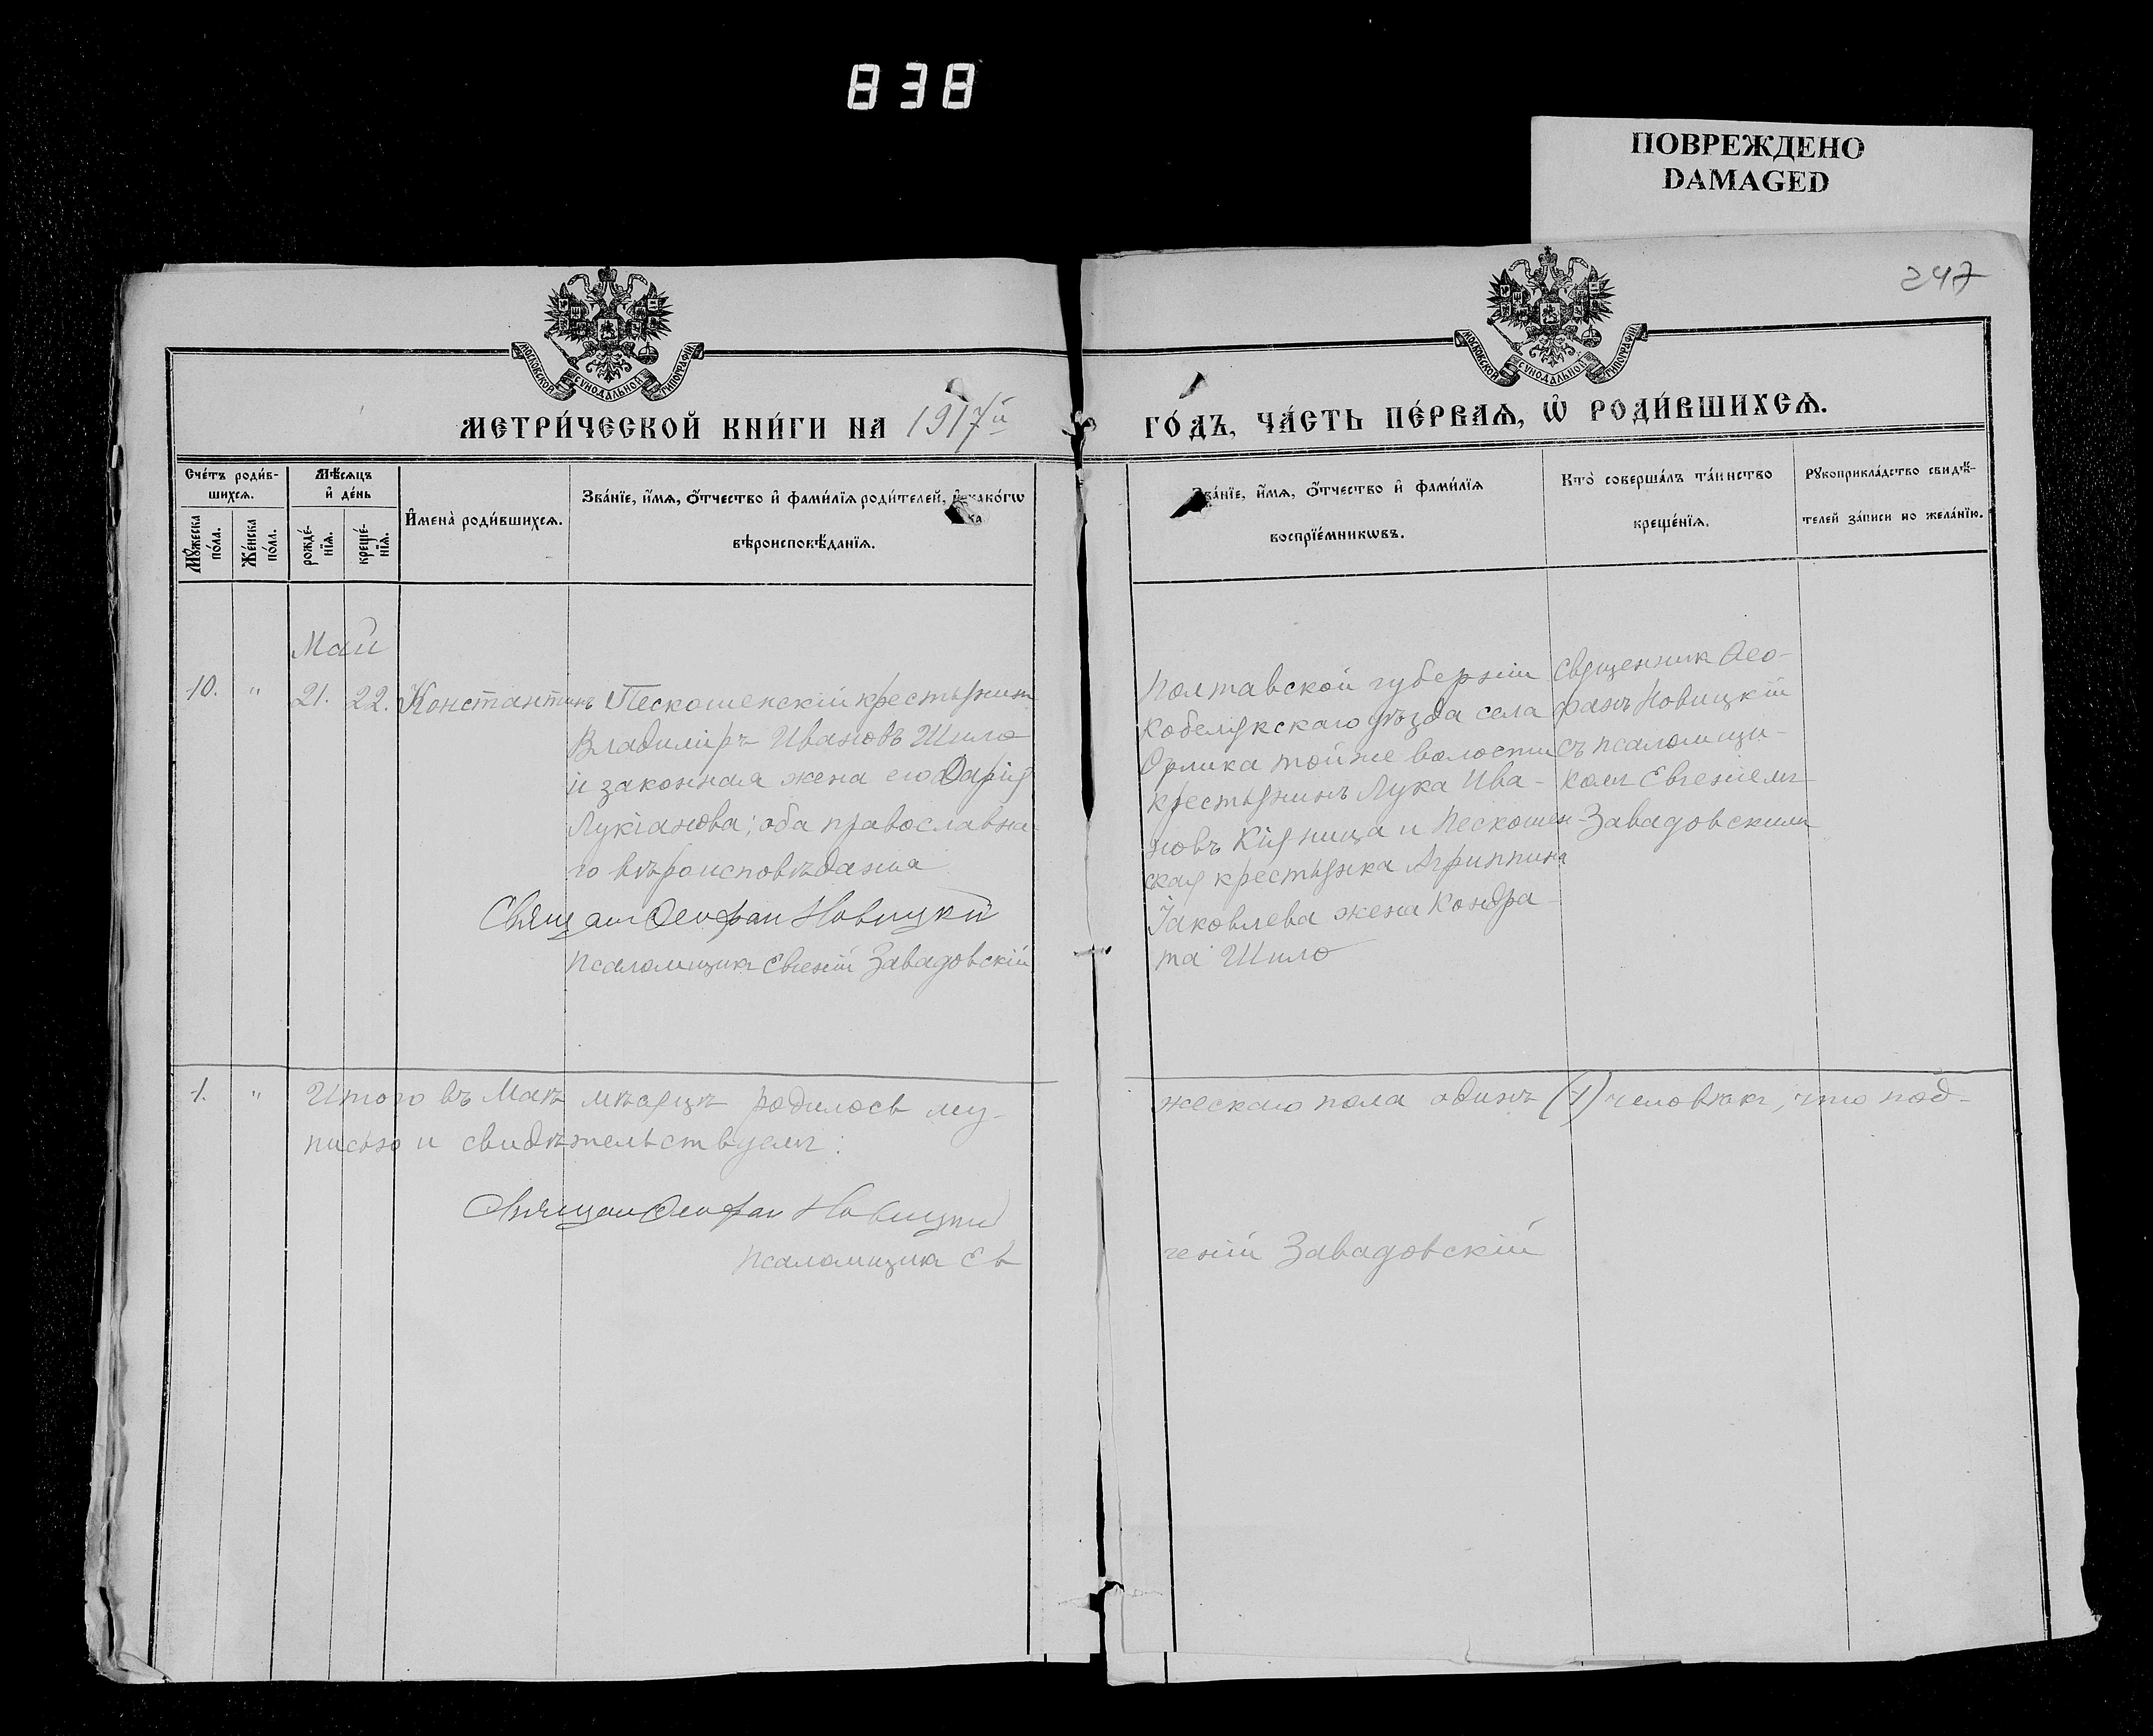 838
ПОВРЕЖДЕНО
DAMAGED
247
МОСКОВСКОЙ СѴНОДАЛЬНОЙ ТИПОГРАФІИ
МОСКОВСКОЙ СѴНОДАЛЬНОЙ ТИПОГРАФІИ
МЕТРИ́ЧЕСКОЙ КНИ́ГИ НА 1917й ГО́ДЪ, ЧА́СТЬ ПЕ́РВАѦ, Ѽ РОДИ́ВШИХСѦ.
Сче́тъ роди́в-
шихсѧ.
Мꙋ́жеска
по́ла.
Же́нска
по́ла.
Мѣ́сѧцъ
и҆ де́нь
рожде́-
нїѧ.
креще́-
нїѧ.
И҆мена̀ роди́вшихсѧ.
Зва́нїе, и҆́мѧ, ѻ҆́тчество и҆ фами́лїѧ роди́телей, и҆ какогѡ
вѣроисповѣ́данїѧ.
Зва́нїе, и҆́мѧ, ѻ҆́тчество и҆ фами́лїѧ
воспрїе́мникѡвъ.
Кто̀ соверша́лъ та́инство
креще́нїѧ.
Рꙋкоприкла́дство свидѣ́-
телей за́писи по жела́нїю.
Май
10. " 21. 22. Константинъ Пескошенскій крестьянинъ
Владиміръ Ивановъ Шило
и законная жена его Дарія
Лукіанова; оба православна-
го вѣроисповѣданія
Священ Феофан Новицкій
Псаломщикъ Евгеній Завадовскій
Полтавской губерніи
Кобелякскаго уѣзда села
Орлика той же волости
крестьянинъ Лука Ива-
новъ Кіяница и Пескошен-
ская крестьянка Агриппина
Іаковлева жена Кондра-
та Шило
Священник Ѳео-
фанъ Новицкій
съ псаломщи-
комъ Евгеніемъ
Завадовскимъ
1. " Итого въ Маѣ мѣсяцѣ родилось му-жескаго пола одинъ (1) человѣкъ, что под-
писью и свидѣтельствуемъ:
Священ Феофан Новицкій
Псаломщикъ Ев-геній Завадовскій